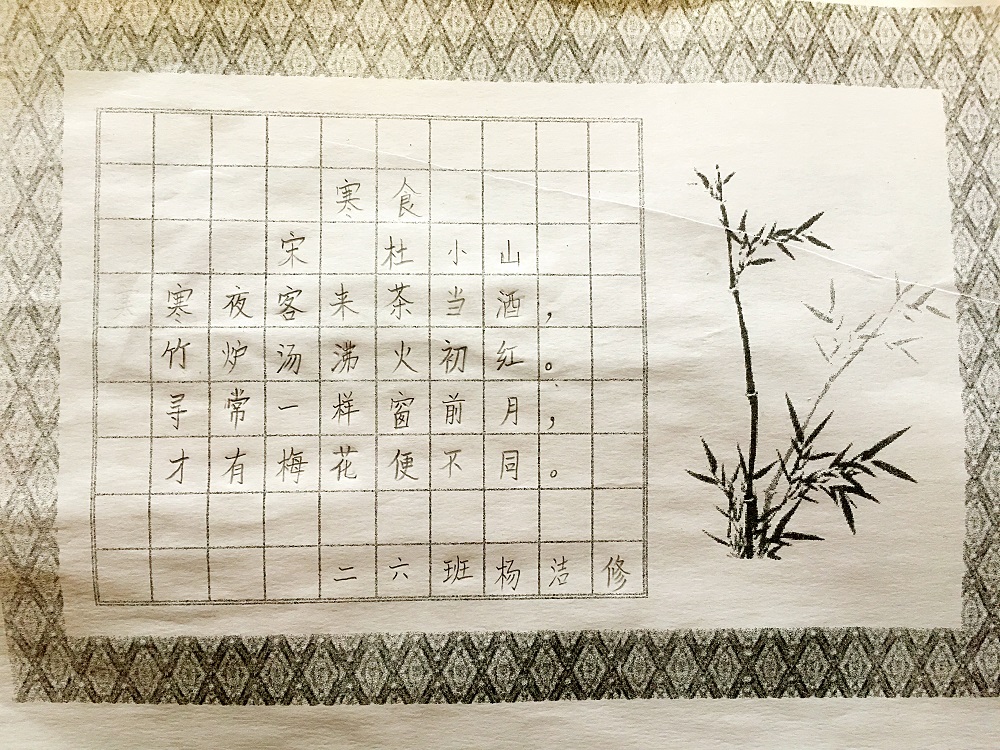 寒食
宋 杜小山
寒夜客来茶当酒，
竹炉汤沸火初红。
寻常一样窗前月，
才有梅花便不同。
二六班杨洁修